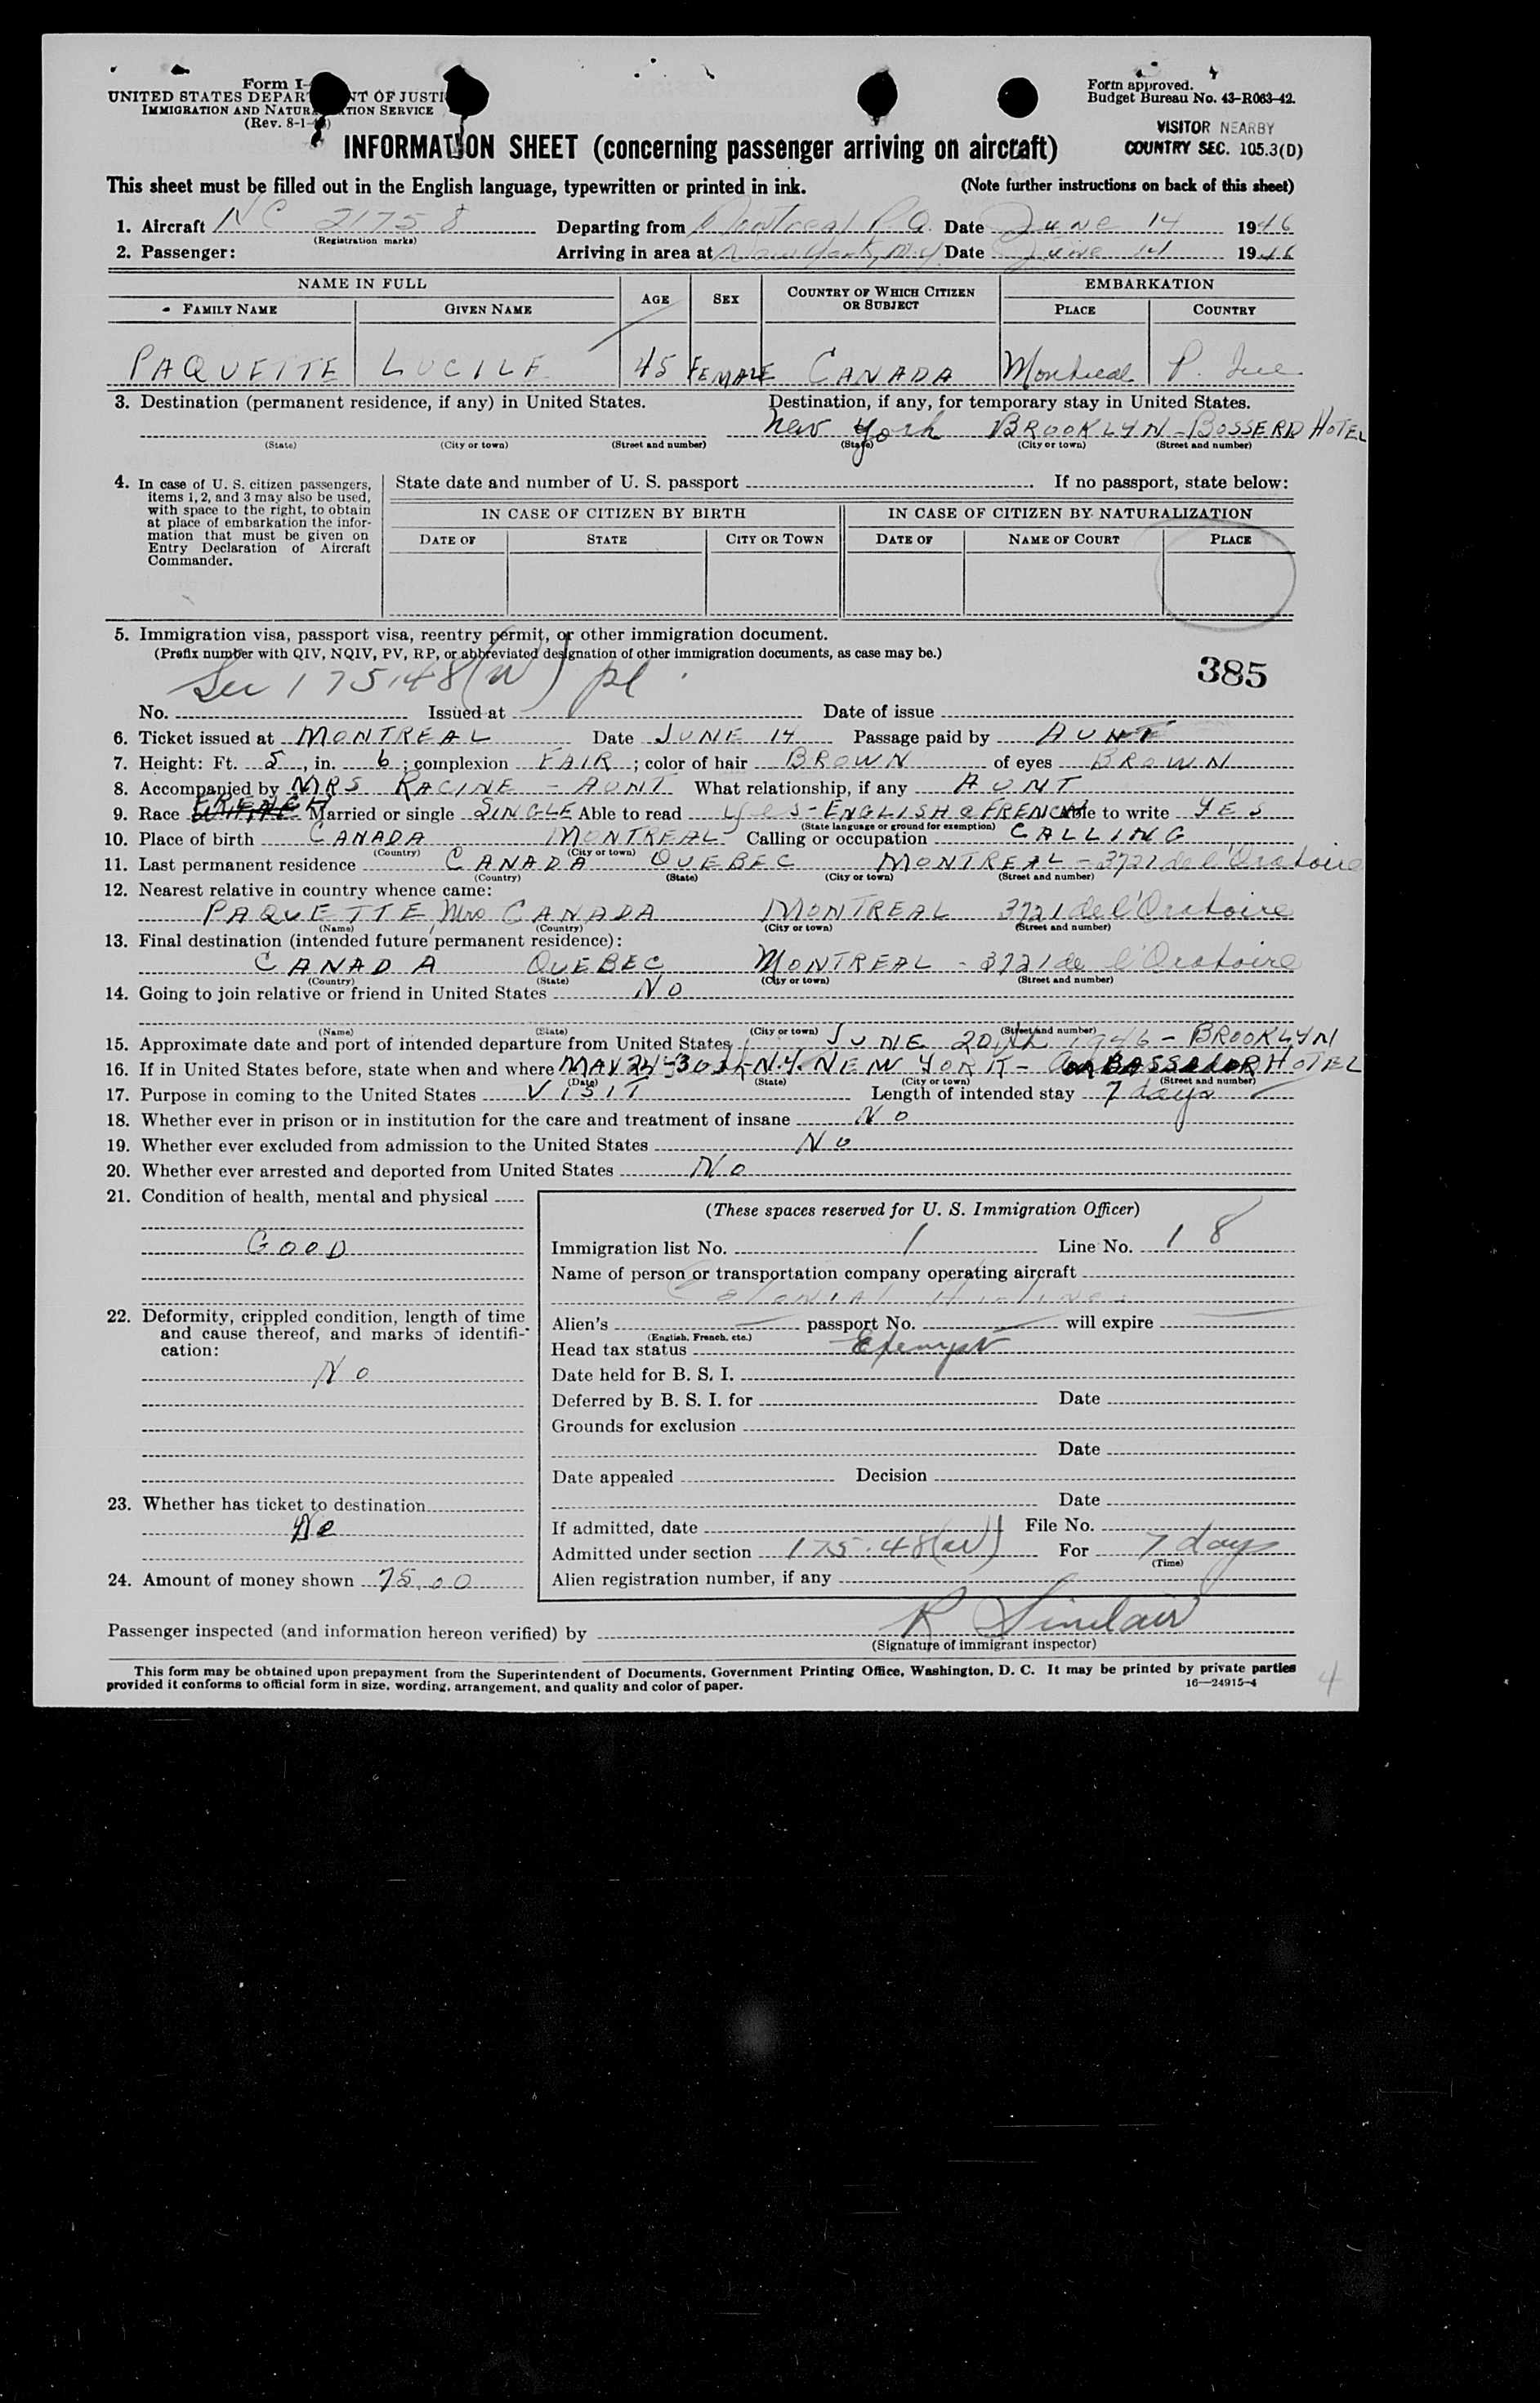 Form I-
UNITED STATES DEPAR NT OF JUSTI
IMMIGRATION AND NATUR TION SERVICE
(Rev. 8-1-
Form approved.
Budget Bureau No. 43-R063-42.
VISITOR NEARBY
COUNTRY SEC. 105.3(D)
INFORMATION SHEET (concerning passenger arriving on aircraft)
This sheet must be filled out in the English language, typewritten or printed in ink. (Note further instructions on back of this sheet)
1. Aircraft NC 21758 Departing from Montreal P.Q. Date June 14 1946
(Registration marks)
2. Passenger: Arriving in area at New York, N.Y. Date June 14 1946
NAME IN FULL AGE SEX COUNTRY OF WHICH CITIZEN OR SUBJECT EMBARKATION
FAMILY NAME GIVEN NAME PLACE COUNTRY
PAQUETTE LUCILE 45 FEMALE CANADA Montreal P. Que
3. Destination (permanent residence, if any) in United States. Destination, if any, for temporary stay in United States.
New York BROOKLYN - BOSSERD HOTEL
(State) (City or town) (Street and number) (State) (City or town) (Street and number)
4. In case of U. S. citizen passengers, items 1, 2, and 3 may also be used, with space to the right, to obtain at place of embarkation the information that must be given on Entry Declaration of Aircraft Commander.
State date and number of U. S. passport If no passport, state below:
IN CASE OF CITIZEN BY BIRTH IN CASE OF CITIZEN BY NATURALIZATION
DATE OF STATE CITY OR TOWN DATE OF NAME OF COURT PLACE
5. Immigration visa, passport visa, reentry permit, or other immigration document.
(Prefix number with QIV, NQIV, PV, RP, or abbreviated designation of other immigration documents, as case may be.)
385
Sec 175.48(W) pl
No. Issued at Date of issue
6. Ticket issued at MONTREAL Date JUNE 14 Passage paid by AUNT
7. Height: Ft. 5, in. 6; complexion FAIR; color of hair BROWN of eyes BROWN
8. Accompanied by MRS RACINE - AUNT What relationship, if any AUNT
9. Race FRENCH WHITE Married or single SINGLE Able to read yes - ENGLISH & FRENCH Able to write YES
(State language or ground for exemption)
10. Place of birth CANADA MONTREAL Calling or occupation CALLING
(Country) (City or town)
11. Last permanent residence CANADA QUEBEC MONTREAL - 3721 de l'Oratoire
(Country) (State) (City or town) (Street and number)
12. Nearest relative in country whence came:
PAQUETTE, Mrs CANADA MONTREAL 3721 de l'Oratoire
(Name) (Country) (City or town) (Street and number)
13. Final destination (intended future permanent residence):
CANADA QUEBEC MONTREAL - 3721 de l'Oratoire
(Country) (State) (City or town) (Street and number)
14. Going to join relative or friend in United States NO
(Name) (State) (City or town) (Street and number)
15. Approximate date and port of intended departure from United States JUNE 20th 1946 - BROOKLYN
16. If in United States before, state when and where MAY 24-30th - N.Y. NEW YORK - AMBASSADOR HOTEL
(Date) (State) (City or town) (Street and number)
17. Purpose in coming to the United States VISIT Length of intended stay 7 days
18. Whether ever in prison or in institution for the care and treatment of insane NO
19. Whether ever excluded from admission to the United States NO
20. Whether ever arrested and deported from United States NO
21. Condition of health, mental and physical
GOOD
22. Deformity, crippled condition, length of time and cause thereof, and marks of identification:
NO
23. Whether has ticket to destination
No
24. Amount of money shown 75.00
(These spaces reserved for U. S. Immigration Officer)
Immigration list No. 1 Line No. 18
Name of person or transportation company operating aircraft
Colonial Airlines
Alien's passport No. will expire
(English, French, etc.)
Head tax status Exempt
Date held for B. S. I.
Deferred by B. S. I. for Date
Grounds for exclusion
Date
Date appealed Decision
Date
If admitted, date File No.
Admitted under section 175.48(W) For 7 days
(Time)
Alien registration number, if any
Passenger inspected (and information hereon verified) by R Sinclair
(Signature of immigrant inspector)
This form may be obtained upon prepayment from the Superintendent of Documents, Government Printing Office, Washington, D. C. It may be printed by private parties
provided it conforms to official form in size, wording, arrangement, and quality and color of paper. 16—24915-4
4